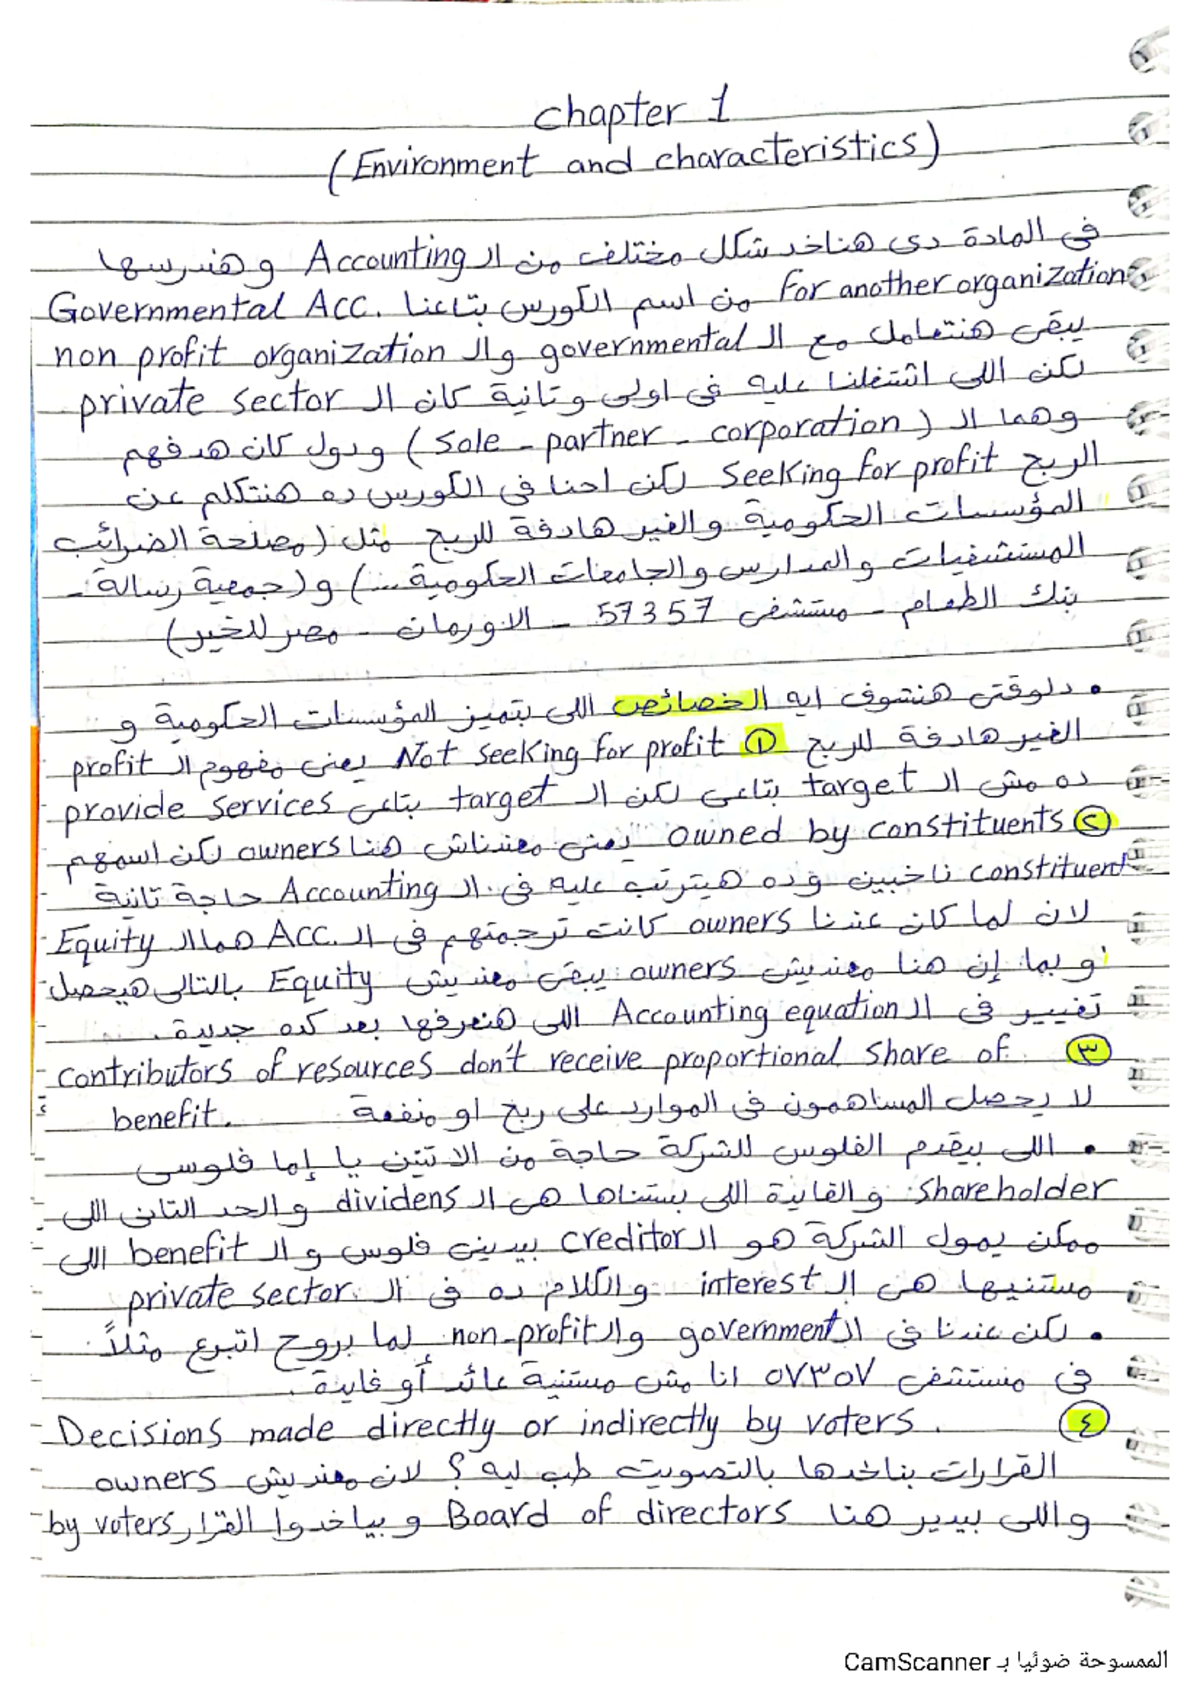 chapter 1
(Environment and characteristics)
فى المادة دى هناخد شكل مختلف من ال Accounting وهندرسها
for another organizations من اسم الكورس بتاعنا Governmental Acc.
يبقى هنتعامل مع ال governmental وال non profit organization
لكن اللى اشتغلنا عليه فى اولى وتانية كان ال private sector
وهما ال (sole - partner - corporation) ودول كان هدفهم
الربح Seeking for profit لكن احنا فى الكورس ده هنتكلم عن
المؤسسات الحكومية والغير هادفة للربح مثل (مصلحة الضرائب
المستشفيات والمدارس والجامعات الحكومية ...) و(جمعية رسالة -
بنك الطعام - مستشفى 57357 - الاورمان - مصر للخير)
• دلوقتى هنشوف ايه الخصائص اللى بتميز المؤسسات الحكومية و
الغير هادفة للربح ① Not seeking for profit يعنى مفهوم ال profit
ده مش ال target بتاعى لكن ال target بتاعى provide services
② owned by constituents يعنى معندناش هنا owners لكن اسمهم
constituent ناخبين وده هيترتب عليه فى ال Accounting حاجة تانية
لان لما كان عندنا owners كانت ترجمتهم فى ال Acc. هما ال Equity
و بما إن هنا معنديش owners يبقى معنديش Equity بالتالى هيحصل
تغيير فى ال Accounting equation اللى هنعرفها بعد كده جديدة.
③ contributors of resources don't receive proportional share of
benefit. لا يحصل المساهمون فى الموارد على ربح او منفعة
• اللى بيقدم الفلوس للشركة حاجة من الاتنين يا إما فلوسى
shareholder والفايدة اللى بستناها هى ال dividens والحد التانى اللى
ممكن يمول الشركة هو ال creditor بيدينى فلوس وال benefit اللى
مستنيها هى ال interest والكلام ده فى ال private sector
• لكن عندنا فى ال government وال non-profit لما بروح اتبرع مثلاً
فى مستشفى ٥٧٣٥٧ انا مش مستنية عائد أو فايدة.
④ Decisions made directly or indirectly by voters.
القرارات بناخدها بالتصويت طب ليه ؟ لان معنديش owners
واللى بيدير هنا Board of directors وبياخدوا القرار by voters
الممسوحة ضوئيا بـ CamScanner